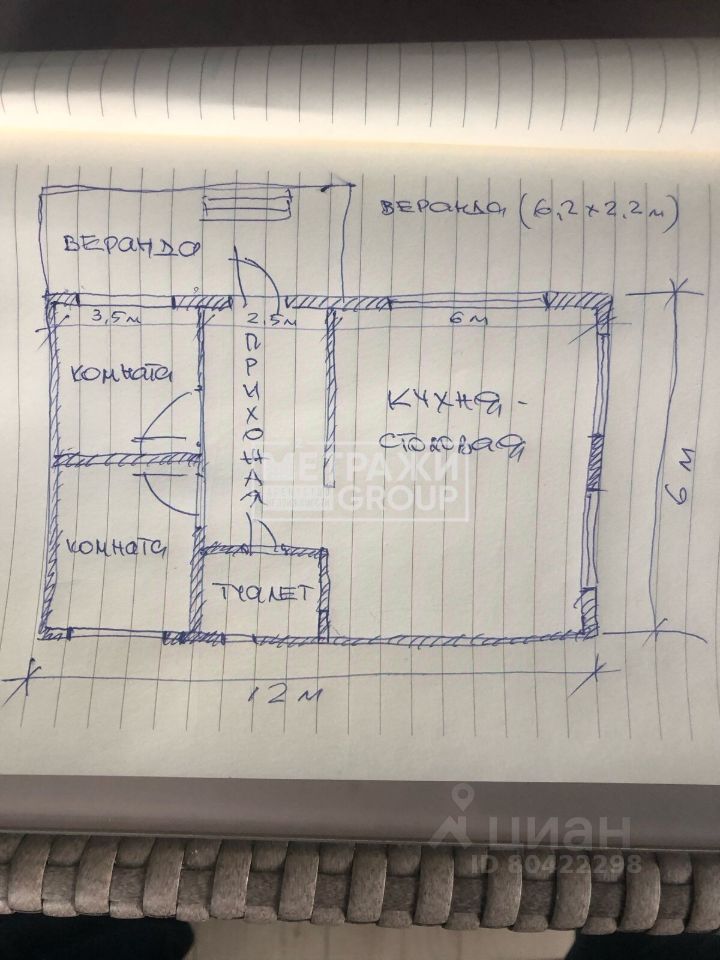 ВЕРАНДА (6,2 х 2,2 м)
ВЕРАНДА
3,5м
2,5м
6 м
КОМНАТА
ПРИХОЖАЯ
КУХНЯ -
СТОЛОВАЯ
МЕТРАЖИ
GROUP
6 м
КОМНАТА
ТУАЛЕТ
12 м
циан
ID 80422298